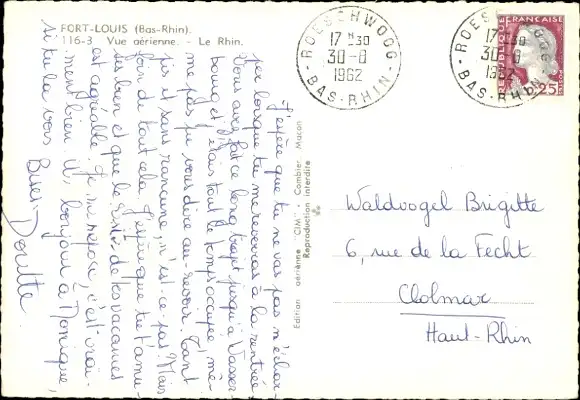 FORT-LOUIS (Bas-Rhin).
116-3 Vue aérienne. - Le Rhin.
J'espère que tu ne vas pas m'échar-
per lorsque tu me reverras à la rentrée
Vous avez fait ce long trajet jusqu'à Wasser-
bourg et j'étais tout le temps occupée, me
me pas pu vous dire au-revoir. Tant
pis et sans rancune, n'est-ce-pas! Mais
foin de tout cela. J'espère que tu t'amu-
ses bien et que le reste de tes vacances
est agréable. Ici, mi séjour, c'est vrai-
ment bien. dis bonjour à Monique,
si tu la vois
Bises
Doutte
Edition aérienne "CIM" - Combier Macon
Reproduction interdite
ROESCHWOOG
17 H 30
30-8
1962
BAS-RHIN
ROESCHWOOG
17 H 30
30-8
1962
BAS-RHIN
REPUBLIQUE FRANÇAISE
POSTES
0,25
Waldvogel Brigitte
6, rue de la Fecht
Colmar
Haut-Rhin